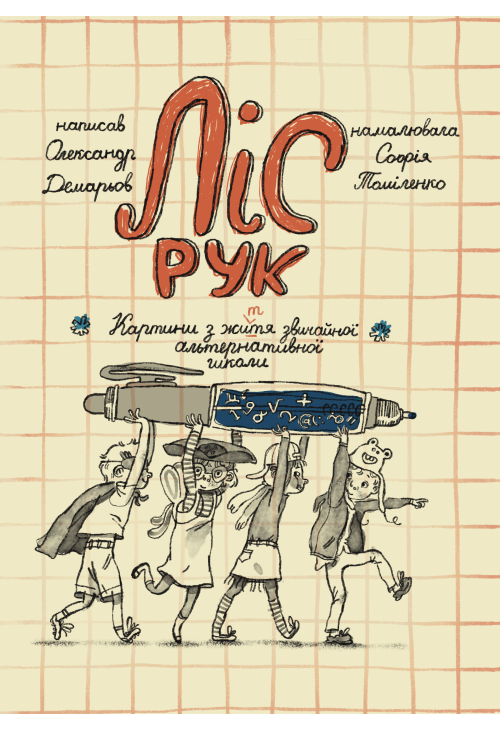 написав
Олександр
Демарьов
Ліс
рук
намалювала
Софія
Томіленко
т
Картини з житя звичайної
альтернативної
школи